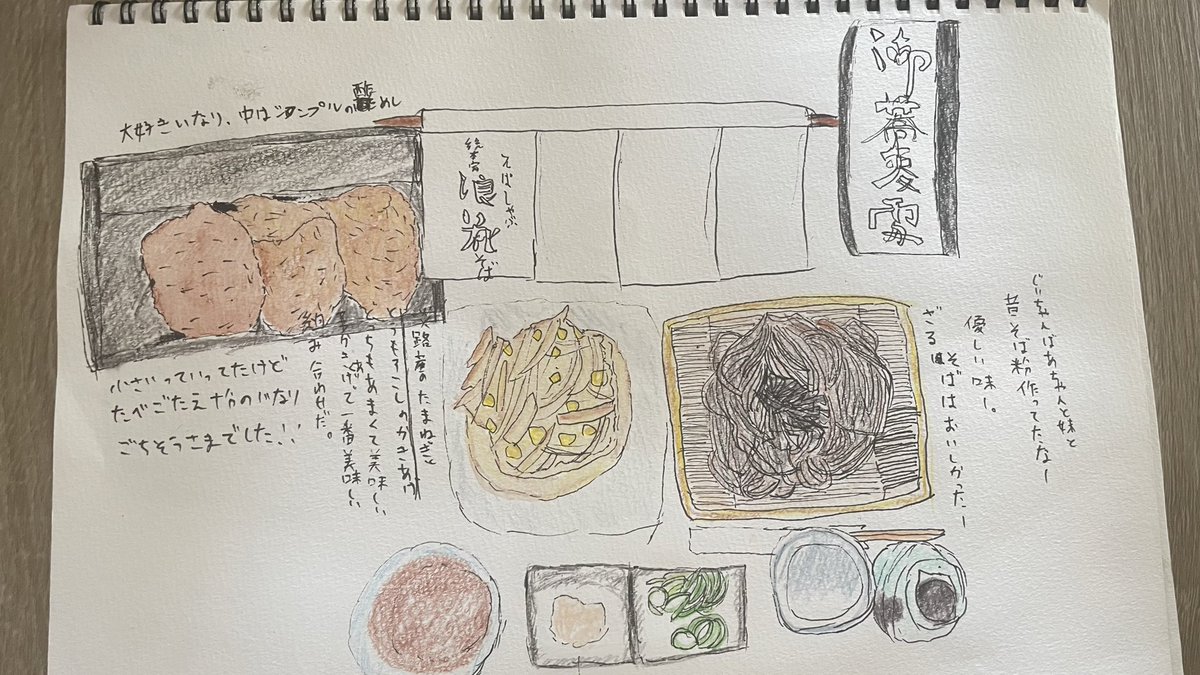 大好きいなり、中はシンプルの酢めし
そばしゃぶ
総本家
浪花そば
御蕎麦
じいちゃんばあちゃんと妹と
昔そば粉作ってたなー
優しい味。
ざるそばはおいしかったー
小さいっていってたけど
たべごたえ十分のいなり
ごちそうさまでした!!
淡路産のたまねぎと
とうもろこしのかきあげ
どっちもあまくて美味しい
かきあげで一番美味しい
組み合わせだ。